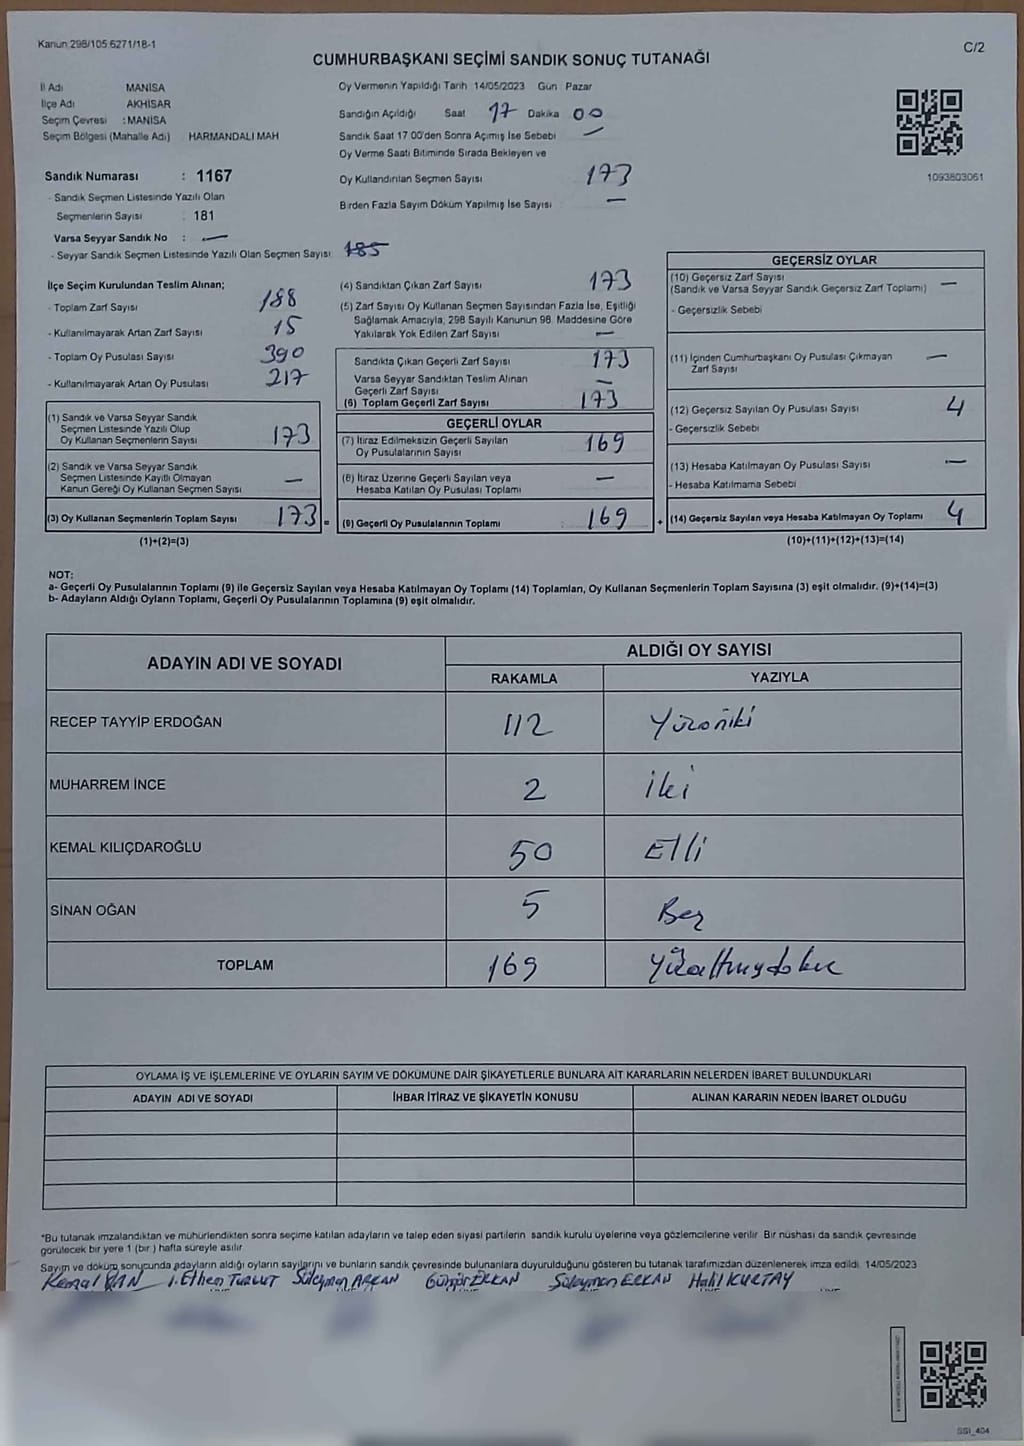 Kanun 298/105 6271/18-1
C/2
CUMHURBAŞKANI SEÇİMİ SANDIK SONUÇ TUTANAĞI
İl Adı MANİSA
İlçe Adı AKHİSAR
Seçim Çevresi : MANİSA
Seçim Bölgesi (Mahalle Adı) HARMANDALI MAH
Sandık Numarası : 1167
- Sandık Seçmen Listesinde Yazılı Olan
Seçmenlerin Sayısı : 181
Varsa Seyyar Sandık No : —
- Seyyar Sandık Seçmen Listesinde Yazılı Olan Seçmen Sayısı 185
Oy Vermenin Yapıldığı Tarih 14/05/2023 Gün Pazar
Sandığın Açıldığı Saat 17 Dakika 00
Sandık Saat 17 00'den Sonra Açımış İse Sebebi —
Oy Verme Saati Bitiminde Sırada Bekleyen ve
Oy Kullandırılan Seçmen Sayısı 173
Birden Fazla Sayım Döküm Yapılmış İse Sayısı —
1093803061
İlçe Seçim Kurulundan Teslim Alınan;
- Toplam Zarf Sayısı 188
- Kullanılmayarak Artan Zarf Sayısı 15
- Toplam Oy Pusulası Sayısı 390
- Kullanılmayarak Artan Oy Pusulası 217
(1) Sandık ve Varsa Seyyar Sandık
Seçmen Listesinde Yazılı Olup
Oy Kullanan Seçmenlerin Sayısı 173
(2) Sandık ve Varsa Seyyar Sandık
Seçmen Listesinde Kayıtlı Olmayan
Kanun Gereği Oy Kullanan Seçmen Sayısı —
(3) Oy Kullanan Seçmenlerin Toplam Sayısı 173 =
(1)+(2)=(3)
(4) Sandıktan Çıkan Zarf Sayısı 173
(5) Zarf Sayısı Oy Kullanan Seçmen Sayısından Fazla İse, Eşitliği
Sağlamak Amacıyla, 298 Sayılı Kanunun 98. Maddesine Göre
Yakılarak Yok Edilen Zarf Sayısı —
Sandıkta Çıkan Geçerli Zarf Sayısı 173
Varsa Seyyar Sandıktan Teslim Alınan
Geçerli Zarf Sayısı —
(6) Toplam Geçerli Zarf Sayısı 173
GEÇERLİ OYLAR
(7) İtiraz Edilmeksizin Geçerli Sayılan
Oy Pusulalarının Sayısı 169
(8) İtiraz Üzerine Geçerli Sayılan veya
Hesaba Katılan Oy Pusulası Toplamı —
(9) Geçerli Oy Pusulalarının Toplamı : 169 +
GEÇERSİZ OYLAR
(10) Geçersiz Zarf Sayısı
(Sandık ve Varsa Seyyar Sandık Geçersiz Zarf Toplamı) —
- Geçersizlik Sebebi
(11) İçinden Cumhurbaşkanı Oy Pusulası Çıkmayan
Zarf Sayısı —
(12) Geçersiz Sayılan Oy Pusulası Sayısı 4
- Geçersizlik Sebebi
(13) Hesaba Katılmayan Oy Pusulası Sayısı —
- Hesaba Katılmama Sebebi
(14) Geçersiz Sayılan veya Hesaba Katılmayan Oy Toplamı 4
(10)+(11)+(12)+(13)=(14)
NOT;
a- Geçerli Oy Pusulalarının Toplamı (9) ile Geçersiz Sayılan veya Hesaba Katılmayan Oy Toplamı (14) Toplamları, Oy Kullanan Seçmenlerin Toplam Sayısına (3) eşit olmalıdır. (9)+(14)=(3)
b- Adayların Aldığı Oyların Toplamı, Geçerli Oy Pusulalarının Toplamına (9) eşit olmalıdır.
ADAYIN ADI VE SOYADI ALDIĞI OY SAYISI
RAKAMLA YAZIYLA
RECEP TAYYİP ERDOĞAN 112 Yüzoniki
MUHARREM İNCE 2 iki
KEMAL KILIÇDAROĞLU 50 Elli
SİNAN OĞAN 5 Beş
TOPLAM 169 Yüzaltmışdokuz
OYLAMA İŞ VE İŞLEMLERİNE VE OYLARIN SAYIM VE DÖKÜMÜNE DAİR ŞİKAYETLERLE BUNLARA AİT KARARLARIN NELERDEN İBARET BULUNDUKLARI
ADAYIN ADI VE SOYADI İHBAR İTİRAZ VE ŞİKAYETİN KONUSU ALINAN KARARIN NEDEN İBARET OLDUĞU
*Bu tutanak imzalandıktan ve mühürlendikten sonra seçime katılan adayların ve talep eden siyasi partilerin sandık kurulu üyelerine veya gözlemcilerine verilir Bir nüshası da sandık çevresinde
görülecek bir yere 1 (bir ) hafta süreyle asılır
Sayım ve döküm sonucunda adayların aldığı oyların sayılarını ve bunların sandık çevresinde bulunanlara duyurulduğunu gösteren bu tutanak tarafımızdan düzenlenerek imza edildi. 14/05/2023
Kemal İ.Ethem TURGUT Süleyman ARKAN Güngör ERKAN Süleyman ERKAN Halil KURTAY
SSI_404